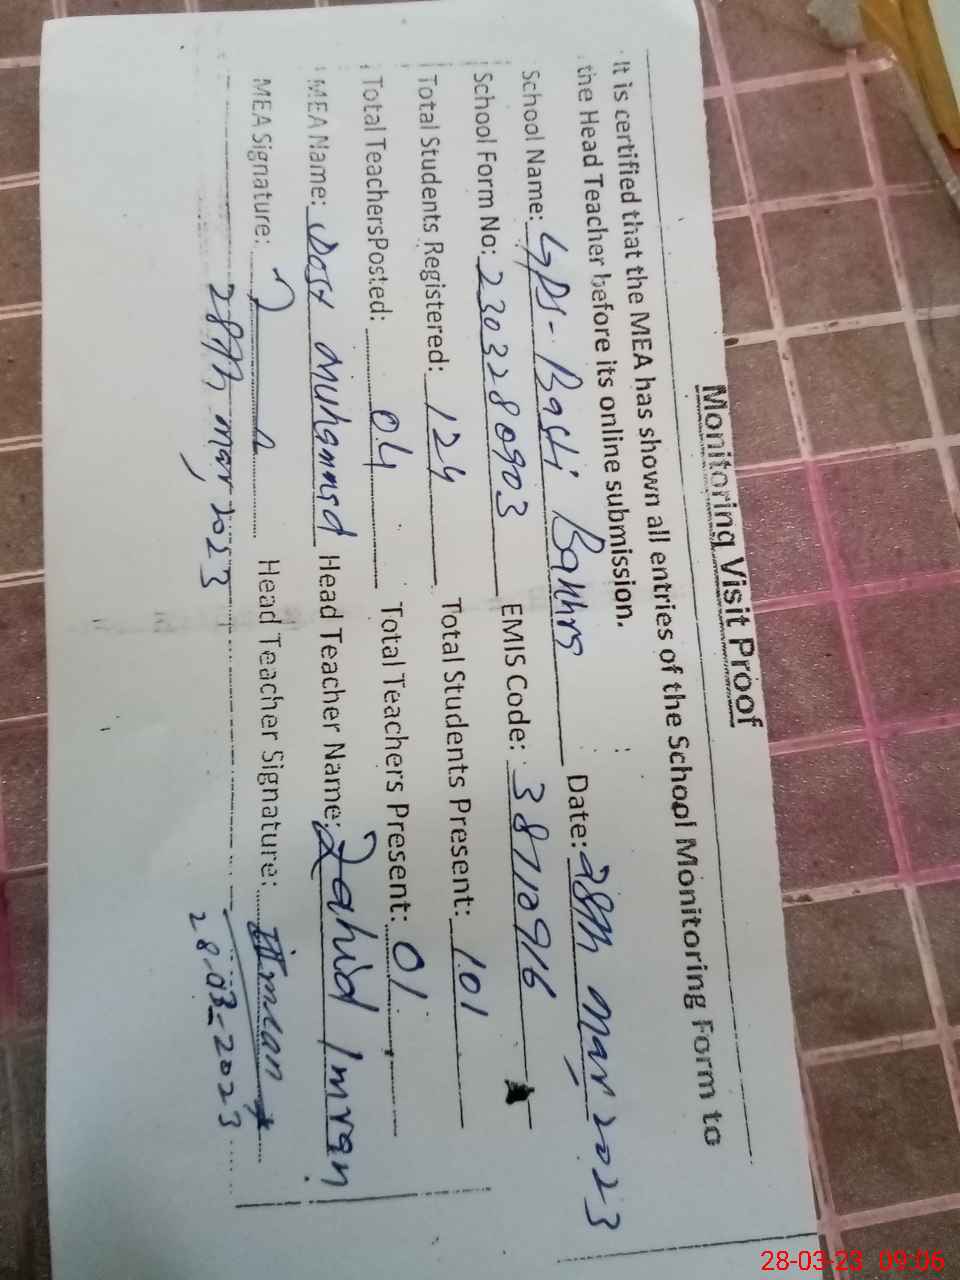 Monitoring Visit Proof
It is certified that the MEA has shown all entries of the School Monitoring Form to
the Head Teacher before its online submission.
School Name: GPS- Basti Date: 28th Mar, 2023
School Form No: 2303280903 EMIS Code: 38710916
Total Students Registered: 124 Total Students Present: 101
Total TeachersPosted: 04 Total Teachers Present: 01
MEA Name: Dost Muhammad Head Teacher Name: Zahid Imran
MEA Signature: Head Teacher Signature: Imran
28th, mar, 2023 28-03-2023
28-03-23 09:06